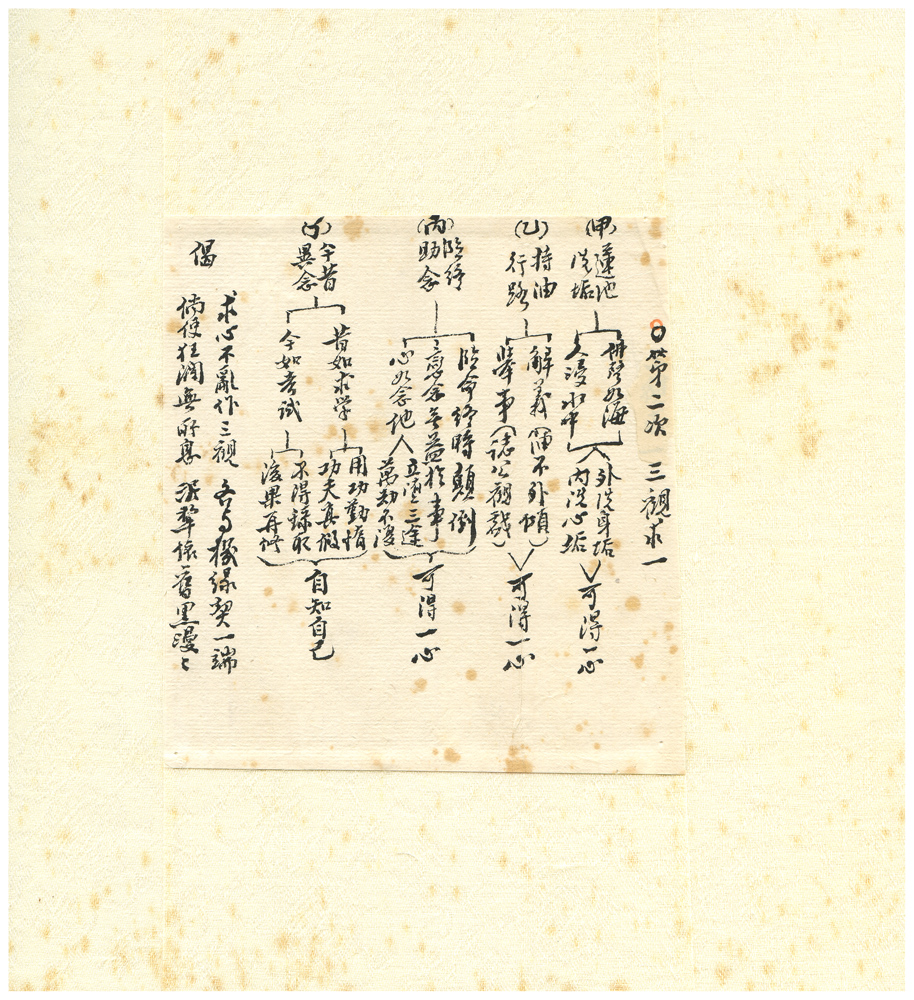 ○第二次　三觀求一
(甲)蓮池
洗垢
佛琴如海
久浸水中
外洗身垢
內洗心垢
可得一心
(乙)持油
行路
解義(油不外傾)
舉事(誌公觀戲)
可得一心
(丙)臨終
助念
臨命終時顛倒
意念無益於事
心如念他人
立墮三途
萬劫不復
可得一心
(丁)今昔
異念
昔如求學
今如考試
用功勤惰
功夫真假
不得錄取
後果再修
自知自己
偈
求心不亂作三觀
各有機緣契一端
倘使狂瀾無所息
依舊黑漫々